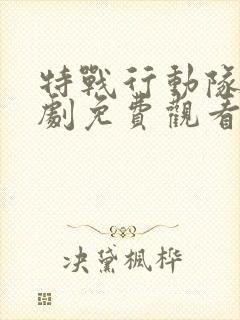 特戰行動隊
劇免費觀看
决黛楓桦